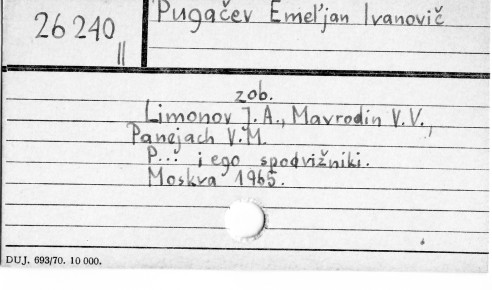 26240
Pugačev Emel'jan Ivanovič
||
zob.
Limonov J.A., Mavrodin V.V.,
Panejach V.M.
P... i ego spodvižniki.
Moskva 1965.
DUJ. 693/70. 10 000.